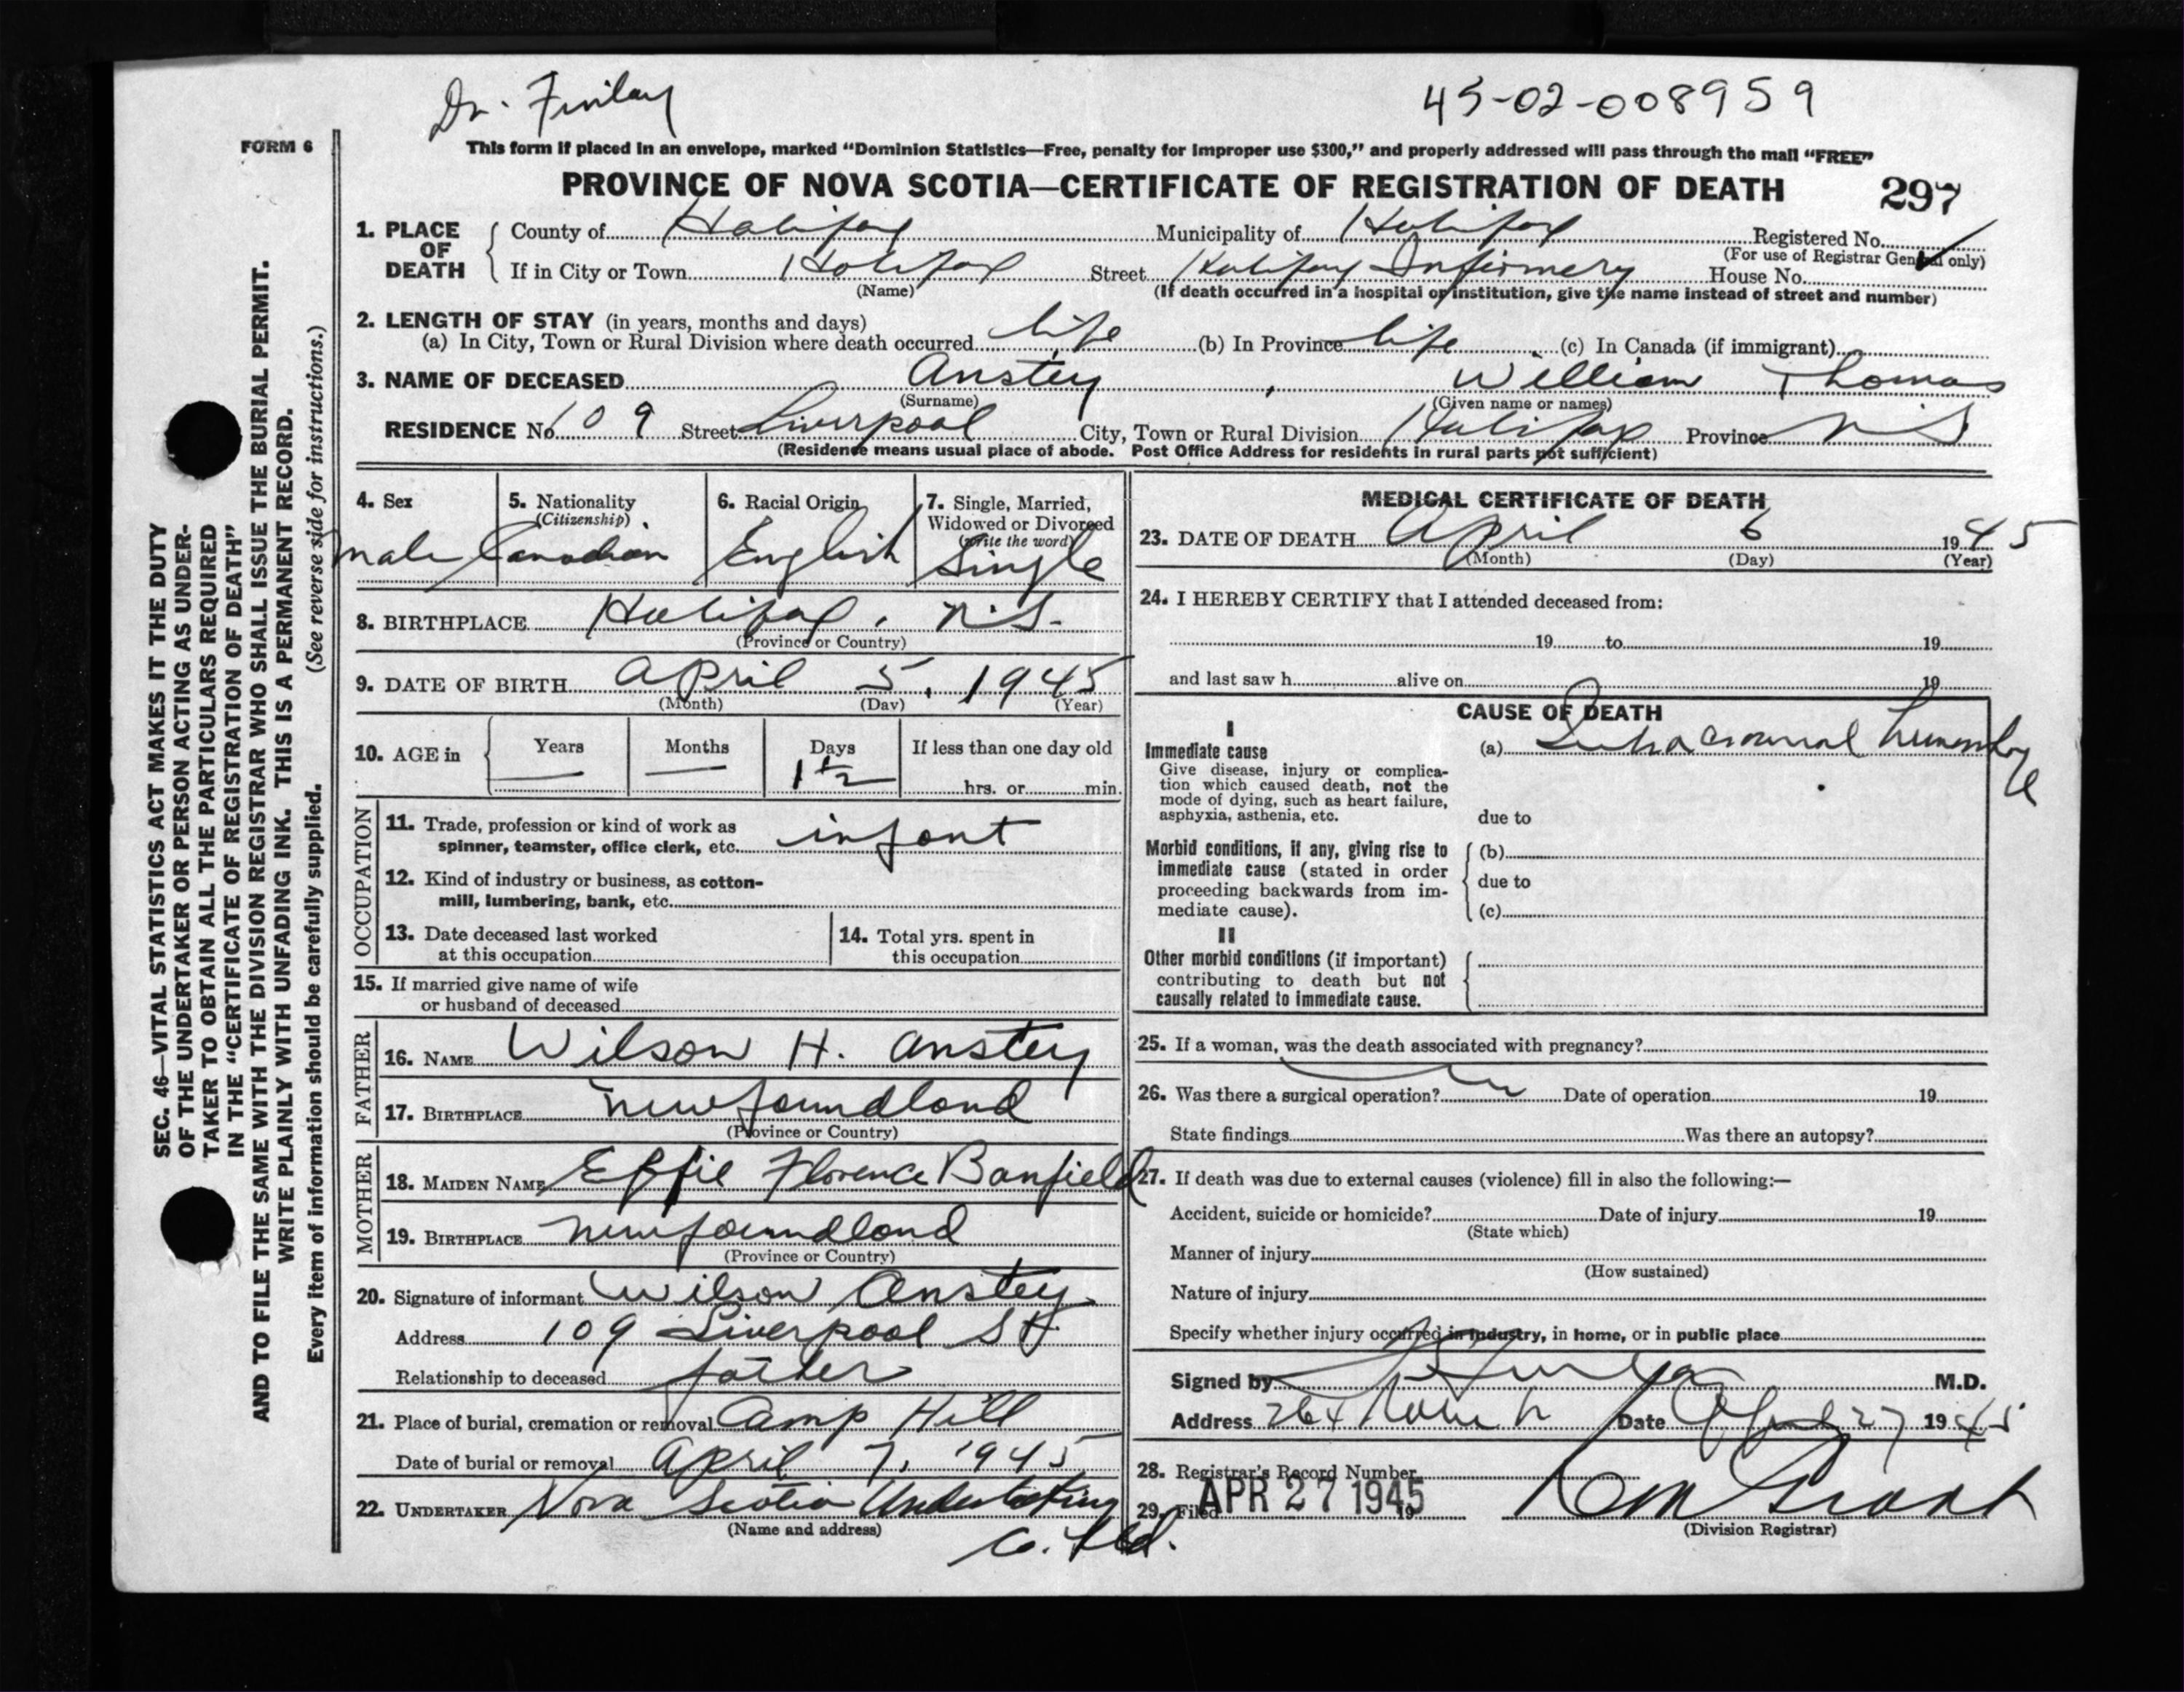 Dr. Finlay
45-02-008959
FORM 6
This form if placed in an envelope, marked "Dominion Statistics—Free, penalty for improper use $300," and properly addressed will pass through the mail "FREE"
PROVINCE OF NOVA SCOTIA—CERTIFICATE OF REGISTRATION OF DEATH 297
1. PLACE OF DEATH
County of Halifax Municipality of Halifax Registered No.
(For use of Registrar General only)
If in City or Town Halifax Street Halifax Infirmery House No.
(Name) (If death occurred in a hospital or institution, give the name instead of street and number)
2. LENGTH OF STAY (in years, months and days)
(a) In City, Town or Rural Division where death occurred life (b) In Province life (c) In Canada (if immigrant)
3. NAME OF DECEASED Anstey, William Thomas
(Surname) (Given name or names)
RESIDENCE No. 109 Street Liverpool City, Town or Rural Division Halifax Province N.S
(Residence means usual place of abode. Post Office Address for residents in rural parts not sufficient)
4. Sex
male
5. Nationality
(Citizenship)
Canadian
6. Racial Origin
English
7. Single, Married,
Widowed or Divorced
(write the word)
Single
8. BIRTHPLACE Halifax, N.S.
(Province or Country)
9. DATE OF BIRTH April 5, 1945
(Month) (Day) (Year)
10. AGE in
Years Months Days If less than one day old
— — 1 1/2 hrs. or min.
OCCUPATION
11. Trade, profession or kind of work as
spinner, teamster, office clerk, etc. infant
12. Kind of industry or business, as cotton-
mill, lumbering, bank, etc.
13. Date deceased last worked
at this occupation
14. Total yrs. spent in
this occupation
15. If married give name of wife
or husband of deceased
FATHER
16. NAME Wilson H. Anstey
17. BIRTHPLACE Newfoundland
(Province or Country)
MOTHER
18. MAIDEN NAME Effie Florence Banfield
19. BIRTHPLACE Newfoundland
(Province or Country)
20. Signature of informant Wilson Anstey
Address 109 Liverpool St
Relationship to deceased father
21. Place of burial, cremation or removal Camp Hill
Date of burial or removal April 7, 1945
22. UNDERTAKER Nova Scotia Undertaking
(Name and address)
Co. Ltd.
MEDICAL CERTIFICATE OF DEATH
23. DATE OF DEATH April 6 1945
(Month) (Day) (Year)
24. I HEREBY CERTIFY that I attended deceased from:
19 to 19
and last saw h alive on 19
CAUSE OF DEATH
I
Immediate cause
Give disease, injury or complica-
tion which caused death, not the
mode of dying, such as heart failure,
asphyxia, asthenia, etc.
(a)
due to
Morbid conditions, if any, giving rise to
immediate cause (stated in order
proceeding backwards from im-
mediate cause).
(b)
due to
(c)
II
Other morbid conditions (if important)
contributing to death but not
causally related to immediate cause.
25. If a woman, was the death associated with pregnancy?
26. Was there a surgical operation? Date of operation 19
State findings Was there an autopsy?
27. If death was due to external causes (violence) fill in also the following:—
Accident, suicide or homicide? Date of injury 19
(State which)
Manner of injury
(How sustained)
Nature of injury
Specify whether injury occurred in industry, in home, or in public place
Signed by M.D.
Address 264 Date 27 1945
28. Registrar's Record Number
29. Filed APR 27 1945 19
(Division Registrar)
SEC. 46—VITAL STATISTICS ACT MAKES IT THE DUTY
OF THE UNDERTAKER OR PERSON ACTING AS UNDER-
TAKER TO OBTAIN ALL THE PARTICULARS REQUIRED
IN THE "CERTIFICATE OF REGISTRATION OF DEATH"
AND TO FILE THE SAME WITH THE DIVISION REGISTRAR WHO SHALL ISSUE THE BURIAL PERMIT.
WRITE PLAINLY WITH UNFADING INK. THIS IS A PERMANENT RECORD.
Every item of information should be carefully supplied. (See reverse side for instructions.)